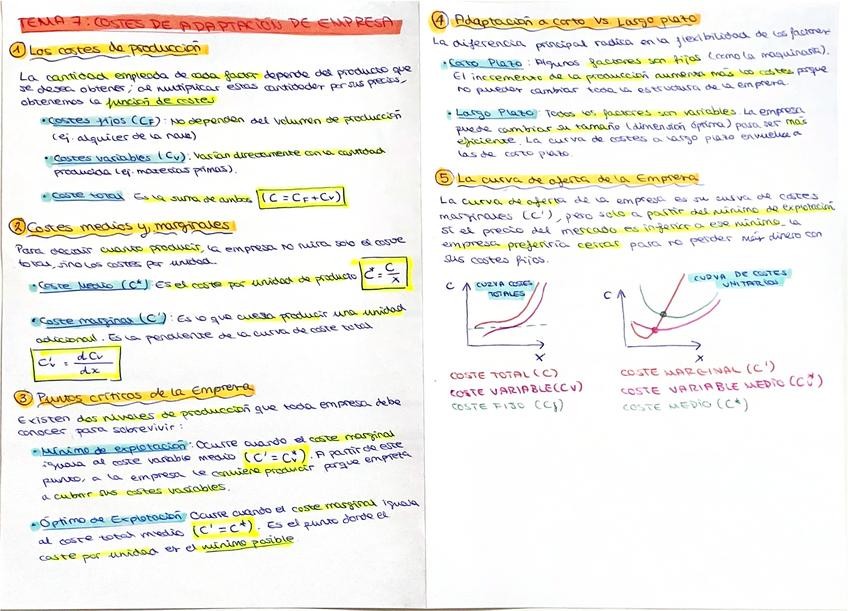 TEMA 7: COSTES DE ADAPTACIÓN DE EMPRESA
1 Los costes de producción
La cantidad empleada de cada factor depende del producto que
se desea obtener; al multiplicar estas cantidades por sus precios,
obtenemos la función de costes
• Costes fijos (CF): No dependen del volumen de producción
(ej. alquiler de la nave)
• Costes variables (Cv): Varían directamente con la cantidad
producida (ej. materias primas).
• Coste total Es la suma de ambos (C = CF + Cv)
2 Costes medios y marginales
Para decidir cuanto producir, la empresa no mira solo el coste
total, sino los costes por unidad.
• Coste Medio (C*): Es el coste por unidad de producto C* = C/x
• Coste marginal (C'): Es lo que cuesta producir una unidad
adicional. Es la pendiente de la curva de coste total
C'v = dCv/dx
3 Puntos críticos de la Empresa
Existen dos niveles de producción que toda empresa debe
conocer para sobrevivir:
• Mínimo de explotación: Ocurre cuando el coste marginal
iguala al coste variable medio (C' = Cv*). A partir de este
punto, a la empresa le conviene producir porque empieza
a cubrir sus costes variables.
• Óptimo de Explotación Ocurre cuando el coste marginal iguala
al coste total medio (C' = C*). Es el punto donde el
coste por unidad es el mínimo posible
4 Adaptación a corto vs Largo plazo
La diferencia principal radica en la flexibilidad de los factores
• Corto Plazo: Algunos factores son fijos (como la maquinaria).
El incremento de la producción aumenta más los costes porque
no puedes cambiar toda la estructura de la empresa.
• Largo Plazo: Todos los factores son variables. La empresa
puede cambiar su tamaño (dimensión óptima) para ser más
eficiente. La curva de costes a largo plazo envuelve a
las de corto plazo.
5 La curva de oferta de la Empresa
La curva de oferta de la empresa es su curva de costes
marginales (C'), pero solo a partir del mínimo de explotación
Si el precio del mercado es inferior a ese mínimo, la
empresa preferiría cerrar para no perder más dinero con
sus costes fijos.
C CURVA COSTES
TOTALES
X
C CURVA DE COSTES
UNITARIOS
X
COSTE TOTAL (C)
COSTE VARIABLE (Cv)
COSTE FIJO (Cf)
COSTE MARGINAL (C')
COSTE VARIABLE MEDIO (Cv*)
COSTE MEDIO (C*)